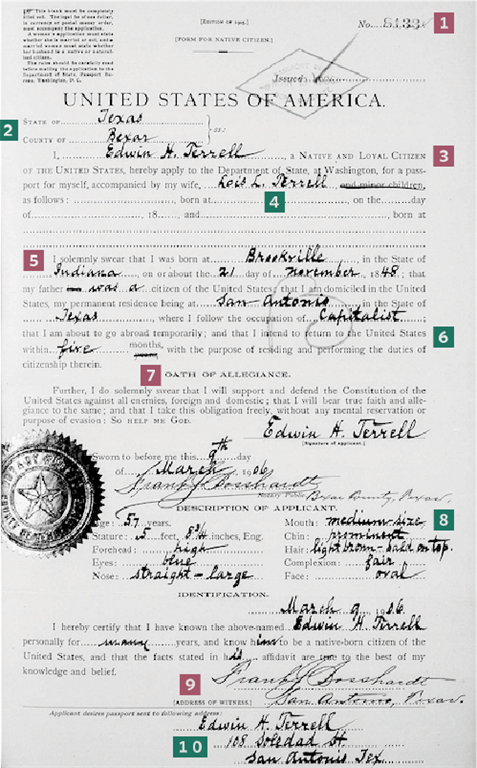 This blank must be completely
filled out. The fee of one dollar,
in currency or postal money order,
must accompany the application.
A woman's application must state
whether she is married or not, and a
married woman must state whether
her husband is a native or natural-
ized citizen.
The rules should be carefully read
before mailing the application to the
Department of State, Passport Bu-
reau, Washington, D. C.
[EDITION OF 1905.]
[FORM FOR NATIVE CITIZEN.]
No.
1
Issued
UNITED STATES OF AMERICA.
2
STATE OF Texas
COUNTY OF Bexar
ss.:
I, Edwin H. Terrell, a NATIVE AND LOYAL CITIZEN
3
OF THE UNITED STATES, hereby apply to the Department of State, at Washington, for a pass-
port for myself, accompanied by my wife, Lois L. Terrell and minor children,
as follows: born at , on the day
4
of , 18 , and , born at
5
I solemnly swear that I was born at Brookville, in the State of
Indiana, on or about the 21 day of November, 1848; that
my father was a citizen of the United States; that I am domiciled in the United
States, my permanent residence being at San Antonio, in the State of
Texas, where I follow the occupation of Capitalist;
that I am about to go abroad temporarily; and that I intend to return to the United States
6
within five months, years, with the purpose of residing and performing the duties of
citizenship therein.
7
OATH OF ALLEGIANCE.
Further, I do solemnly swear that I will support and defend the Constitution of the
United States against all enemies, foreign and domestic; that I will bear true faith and alle-
giance to the same; and that I take this obligation freely, without any mental reservation or
purpose of evasion: SO HELP ME GOD.
Edwin H. Terrell
[Signature of applicant.]
Sworn to before me this 9th day
of March, 1906
Frank J Bosshardt
Notary Public Bexar County, Texas.
DESCRIPTION OF APPLICANT.
Age: 57 years. Mouth: medium size
8
Stature: 5 feet, 8 3/4 inches, Eng. Chin: prominent
Forehead: high Hair: light brown - bald on top.
Eyes: blue Complexion: fair
Nose: straight - large Face: oval
IDENTIFICATION.
March 9, 1906
I hereby certify that I have known the above-named Edwin H. Terrell
personally for many years, and know him to be a native-born citizen of the
United States, and that the facts stated in his affidavit are true to the best of my
knowledge and belief.
Frank J Bosshardt
9
[ADDRESS OF WITNESS] San Antonio, Texas.
Applicant desires passport sent to following address:
Edwin H. Terrell
10
108 Soledad St
San Antonio Tex